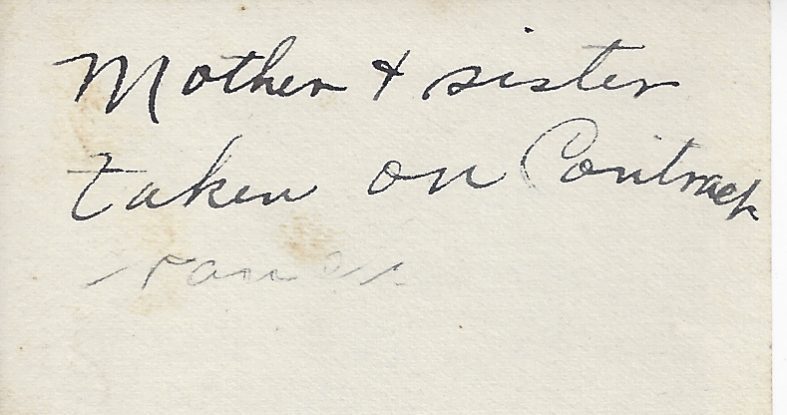 Mother & sister
taken on Contract